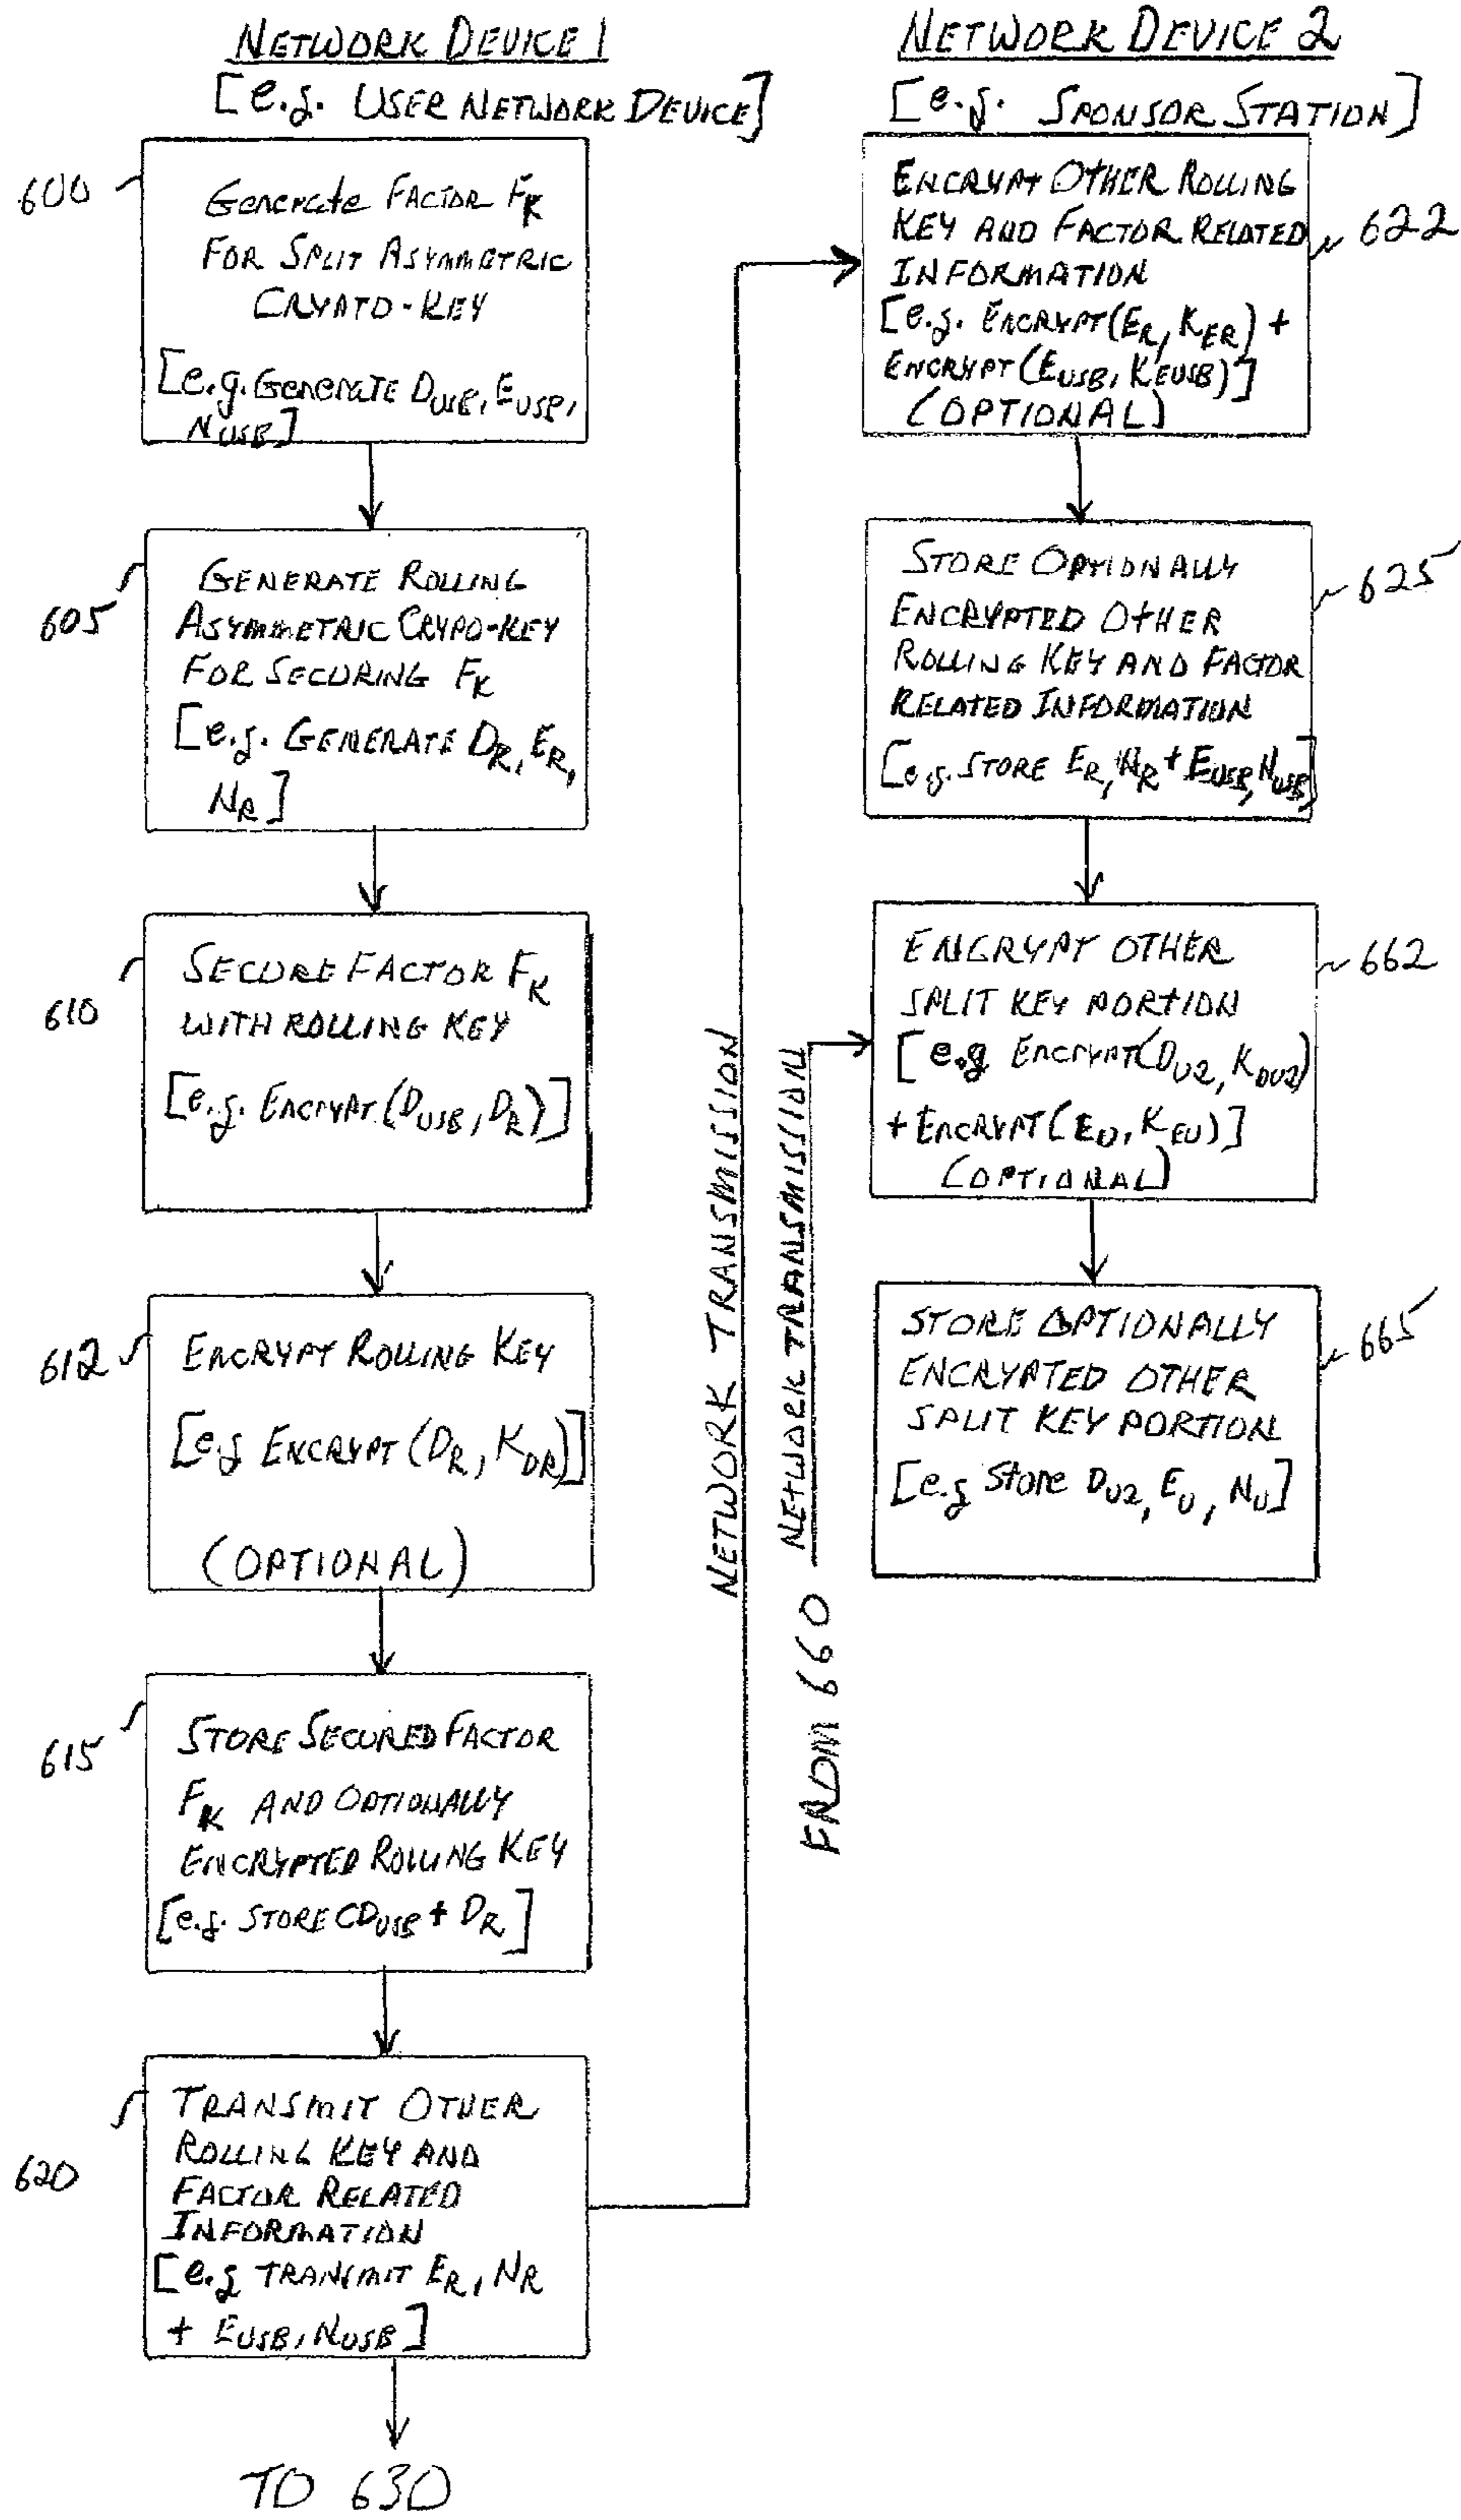 NETWORK DEVICE 1
[e.g. USER NETWORK DEVICE]
600
Generate FACTOR FK
FOR SPLIT ASYMMETRIC
CRYPTO-KEY
[e.g. Generate DUSB, EUSB,
NUSB]
605
GENERATE ROLLING
ASYMMETRIC CRYPO-KEY
FOR SECURING FK
[e.g. GENERATE DR, ER,
NR]
610
SECURE FACTOR FK
WITH ROLLING KEY
[e.g. ENCRYPT(DUSB, DR)]
612
ENCRYPT ROLLING KEY
[e.g ENCRYPT (DR, KDR)]
(OPTIONAL)
615
STORE SECURED FACTOR
FK AND OPTIONALLY
ENCRYPTED ROLLING KEY
[e.g. STORE CDUSB + DR]
620
TRANSMIT OTHER
ROLLING KEY AND
FACTOR RELATED
INFORMATION
[e.g TRANSMIT ER, NR
+ EUSB, NUSB]
TO 630
NETWORK TRANSMISSION
FROM 660 NETWORK TRANSMISSION
NETWORK DEVICE 2
[e.g. SPONSOR STATION]
622
ENCRYPT OTHER ROLLING
KEY AND FACTOR RELATED
INFORMATION
[e.g. ENCRYPT(ER, KER) +
ENCRYPT(EUSB, KEUSB)]
(OPTIONAL)
625
STORE OPTIONALLY
ENCRYPTED OTHER
ROLLING KEY AND FACTOR
RELATED INFORMATION
[e.g. STORE ER, NR + EUSB, NUSB]
662
ENCRYPT OTHER
SPLIT KEY PORTION
[e.g ENCRYPT(DU2, KDU2)
+ ENCRYPT(EU, KEU)]
(OPTIONAL)
665
STORE OPTIONALLY
ENCRYPTED OTHER
SPLIT KEY PORTION
[e.g Store DU2, EU, NU]